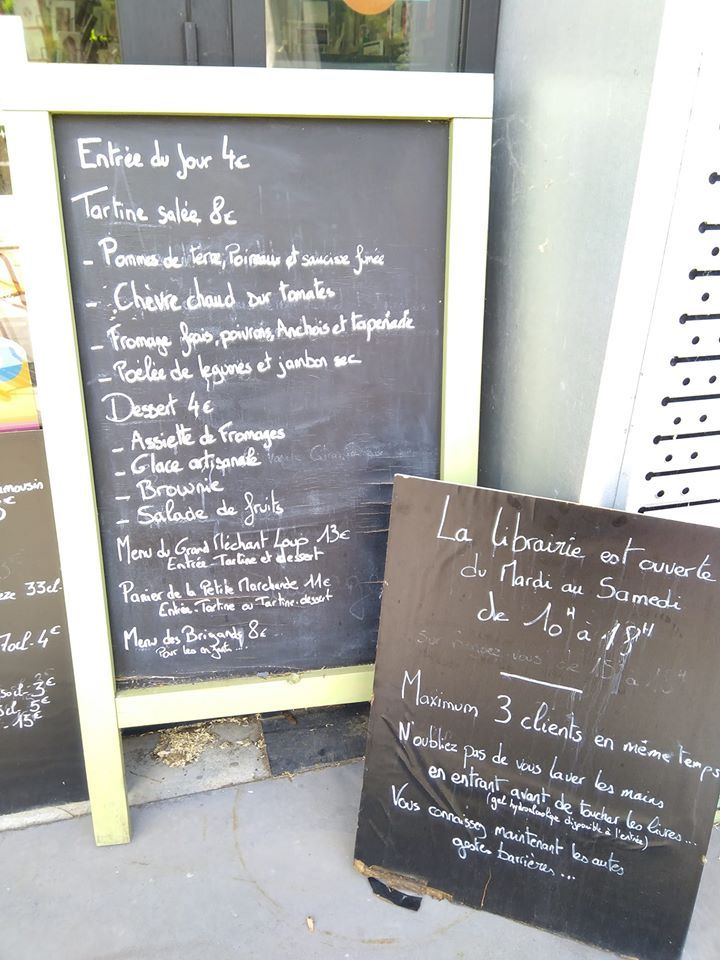 Entrée du Jour 4€
Tartine salée 8€
- Pommes de terre, Poireaux et saucisse fumée
- Chèvre chaud sur tomates
- Fromage frais, poivrons, Anchois et tapenade
- Poêlée de légumes et jambon sec
Dessert 4€
- Assiette de Fromages
- Glace artisanale
- Brownie
- Salade de fruits
Menu du Grand Méchant Loup 13€
Entrée-Tartine et dessert
Panier de la Petite Marchande 11€
Entrée-Tartine ou Tartine-dessert
Menu des Brigands 8€
Pour les enfants...
33cl-
4€
3€
5€
15€
La librairie est ouverte
du Mardi au Samedi
de 10H à 18H
Maximum 3 clients en même temps
N'oubliez pas de vous laver les mains
en entrant avant de toucher les livres...
(gel hydroalcoolique disponible à l'entrée)
Vous connaissez maintenant les autres
gestes barrières...